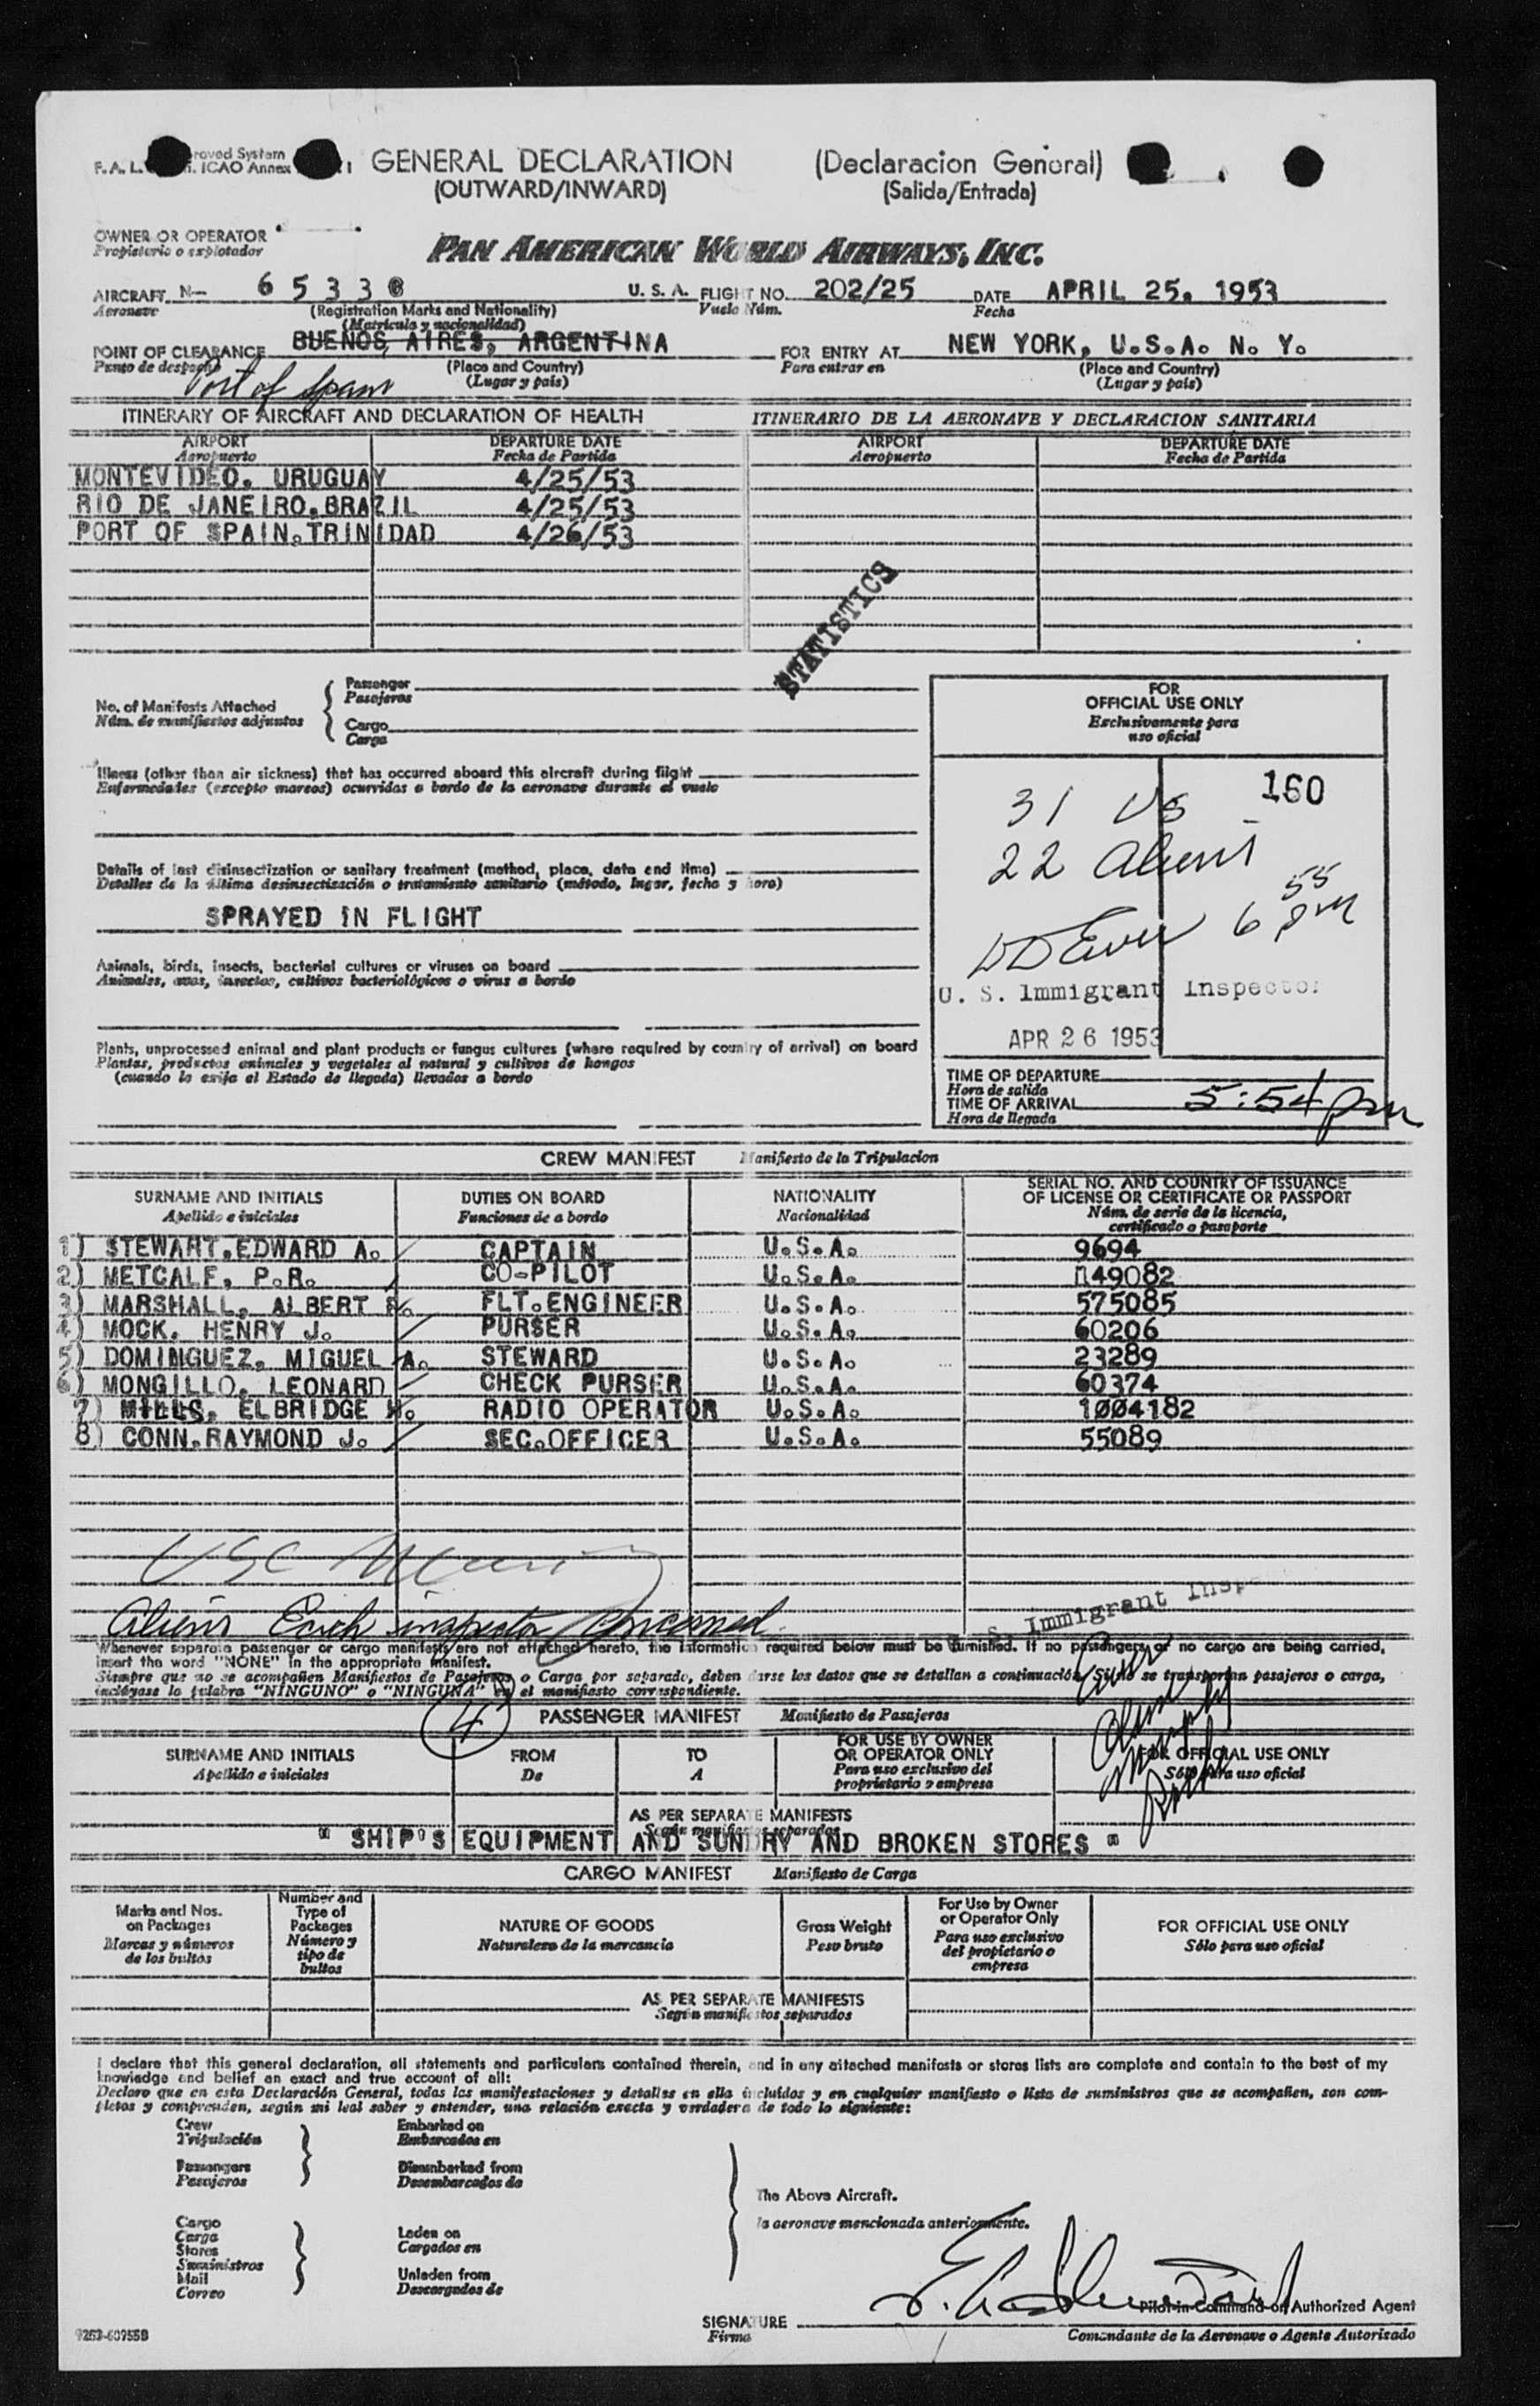 F. A. L. roved System
n. ICAO Annex 1
GENERAL DECLARATION (Declaracion General)
(OUTWARD/INWARD) (Salida/Entrada)
OWNER OR OPERATOR
Propietario o explotador
PAN AMERICAN WORLD AIRWAYS, INC.
AIRCRAFT N- 65338 U. S. A. FLIGHT NO. 202/25 DATE APRIL 25. 1953
Aeronave (Registration Marks and Nationality) Vuelo Núm. Fecha
(Matricula y nacionalidad)
POINT OF CLEARANCE BUENOS AIRES, ARGENTINA FOR ENTRY AT NEW YORK, U.S.A. N. Y.
Punto de despacho (Place and Country) Para entrar en (Place and Country)
Port of Spain (Lugar y pais) (Lugar y pais)
ITINERARY OF AIRCRAFT AND DECLARATION OF HEALTH ITINERARIO DE LA AERONAVE Y DECLARACION SANITARIA
AIRPORT DEPARTURE DATE AIRPORT DEPARTURE DATE
Aeropuerto Fecha de Partida Aeropuerto Fecha de Partida
MONTEVIDEO. URUGUAY 4/25/53
RIO DE JANEIRO.BRAZIL 4/25/53
PORT OF SPAIN.TRINIDAD 4/26/53
STATISTICS
No. of Manifests Attached
Núm. de manifiestos adjuntos
Passenger
Pasajeros
Cargo
Carga
FOR
OFFICIAL USE ONLY
Exclusivamente para
uso oficial
Illness (other than air sickness) that has occurred aboard this aircraft during flight
Enfermedades (excepto mareos) ocurridas a bordo de la aeronave durante el vuelo
160
31 US
22 Aliens
Details of last disinsectization or sanitary treatment (method, place, date and time)
Detalles de la última desinsectización o tratamiento sanitario (método, lugar, fecha y hora)
SPRAYED IN FLIGHT
6 55 pm
Animals, birds, insects, bacterial cultures or viruses on board
Animales, aves, insectos, cultivos bacteriológicos o virus a bordo
U. S. Immigrant Inspector
APR 26 1953
Plants, unprocessed animal and plant products or fungus cultures (where required by country of arrival) on board
Plantas, productos animales y vegetales al natural y cultivos de hongos
(cuando lo exija el Estado de llegada) llevados a bordo
TIME OF DEPARTURE
Hora de salida
TIME OF ARRIVAL 5:54 pm
Hora de llegada
CREW MANIFEST Manifiesto de la Tripulacion
SURNAME AND INITIALS DUTIES ON BOARD NATIONALITY SERIAL NO. AND COUNTRY OF ISSUANCE
OF LICENSE OR CERTIFICATE OR PASSPORT
Apellido e iniciales Funciones de a bordo Nacionalidad Núm. de serie de la licencia,
certificado o pasaporte
1) STEWART.EDWARD A. CAPTAIN U.S.A. 9694
2) METCALF, P.R. CO-PILOT U.S.A. 149082
3) MARSHALL, ALBERT FLT.ENGINEER U.S.A. 575085
4) MOCK. HENRY J. PURSER U.S.A. 60206
5) DOMINGUEZ. MIGUEL A. STEWARD U.S.A. 23289
6) MONGILLO, LEONARD CHECK PURSER U.S.A. 60374
7) MILLS, ELBRIDGE RADIO OPERATOR U.S.A. 1004182
8) CONN.RAYMOND J. SEC.OFFICER U.S.A. 55089
USC
Aliens Each inspector concerned
S. Immigrant Insp
Whenever separate passenger or cargo manifests are not attached hereto, the information required below must be furnished. If no passengers or no cargo are being carried,
insert the word "NONE" in the appropriate manifest.
Siempre que no se acompañen Manifiestos de Pasajeros o Carga por separado, deben darse los datos que se detallan a continuación. Si no se transportan pasajeros o carga,
inclúyase la palabra "NINGUNO" o "NINGUNA" en el manifiesto correspondiente.
4
PASSENGER MANIFEST Manifiesto de Pasajeros
SURNAME AND INITIALS FROM TO FOR USE BY OWNER
OR OPERATOR ONLY FOR OFFICIAL USE ONLY
Apellido e iniciales De A Para uso exclusivo del
propietario o empresa Sólo para uso oficial
Murphy
AS PER SEPARATE MANIFESTS
Según manifiestos separados
" SHIP'S EQUIPMENT AND SUNDRY AND BROKEN STORES "
CARGO MANIFEST Manifiesto de Carga
Marks and Nos.
on Packages
Marcas y números
de los bultos
Number and
Type of
Packages
Número y
tipo de
bultos
NATURE OF GOODS
Naturaleza de la mercancia
Gross Weight
Peso bruto
For Use by Owner
or Operator Only
Para uso exclusivo
del propietario o
empresa
FOR OFFICIAL USE ONLY
Sólo para uso oficial
AS PER SEPARATE MANIFESTS
Según manifiestos separados
I declare that this general declaration, all statements and particulars contained therein, and in any attached manifests or stores lists are complete and contain to the best of my
knowledge and belief an exact and true account of all:
Declaro que en esta Declaración General, todas las manifestaciones y detalles en ella incluidos y en cualquier manifiesto o lista de suministros que se acompañen, son com-
pletos y comprenden, según mi leal saber y entender, una relación exacta y verdadera de todo lo siguiente:
Crew
Tripulación
Passengers
Pasajeros
Embarked on
Embarcados en
Disembarked from
Desembarcados de
Cargo
Carga
Stores
Suministros
Mail
Correo
Laden on
Cargados en
Unladen from
Descargados de
The Above Aircraft.
la aeronave mencionada anteriormente.
SIGNATURE
Firma
Pilot-in-Command or Authorized Agent
Comandante de la Aeronave o Agente Autorizado
9253-60755B